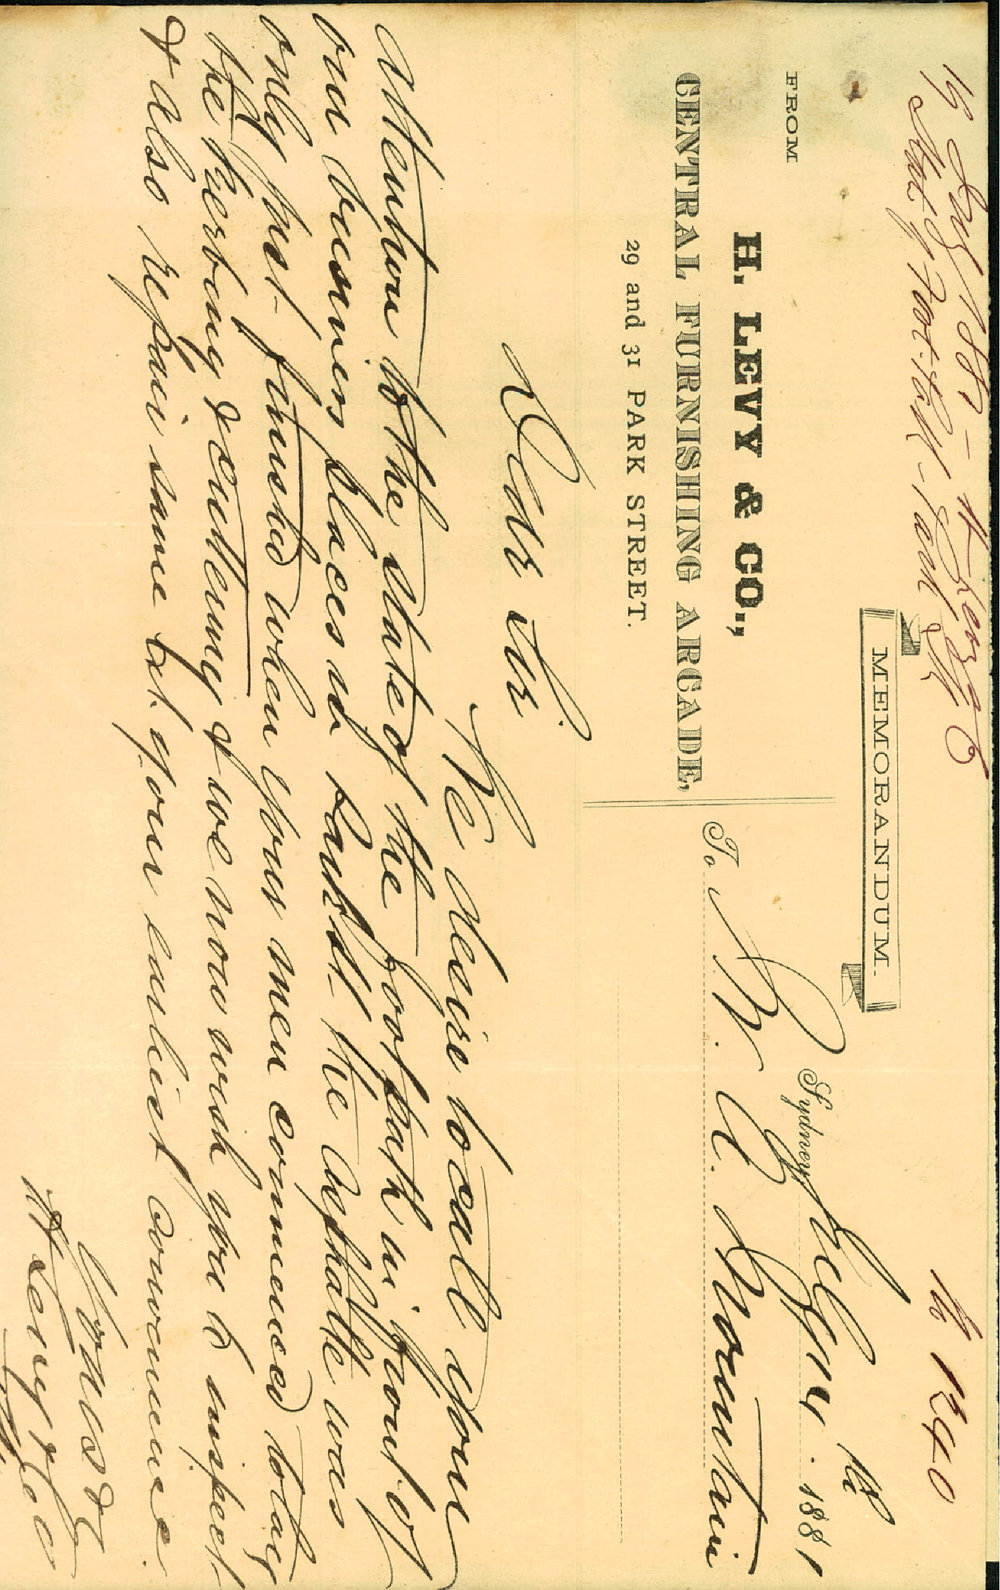 16 July 1881 - H. Levy & Co
State of Footpath - Park St
M 1240
MEMORANDUM.
FROM
H. LEVY & CO.,
CENTRAL FURNISHING ARCADE,
29 and 31 PARK STREET.
Sydney July 1881
To Mr. A. Mountain
Dear Sir
We desire to call your
attention to the state of the footpath in front of
our business places in Park St. the asphalte was
only just finished when your men commenced to lay
the kerbing & guttering & we now wish you to inspect
& also repair same at your earliest convenience.
Yours &c
H Levy & Co